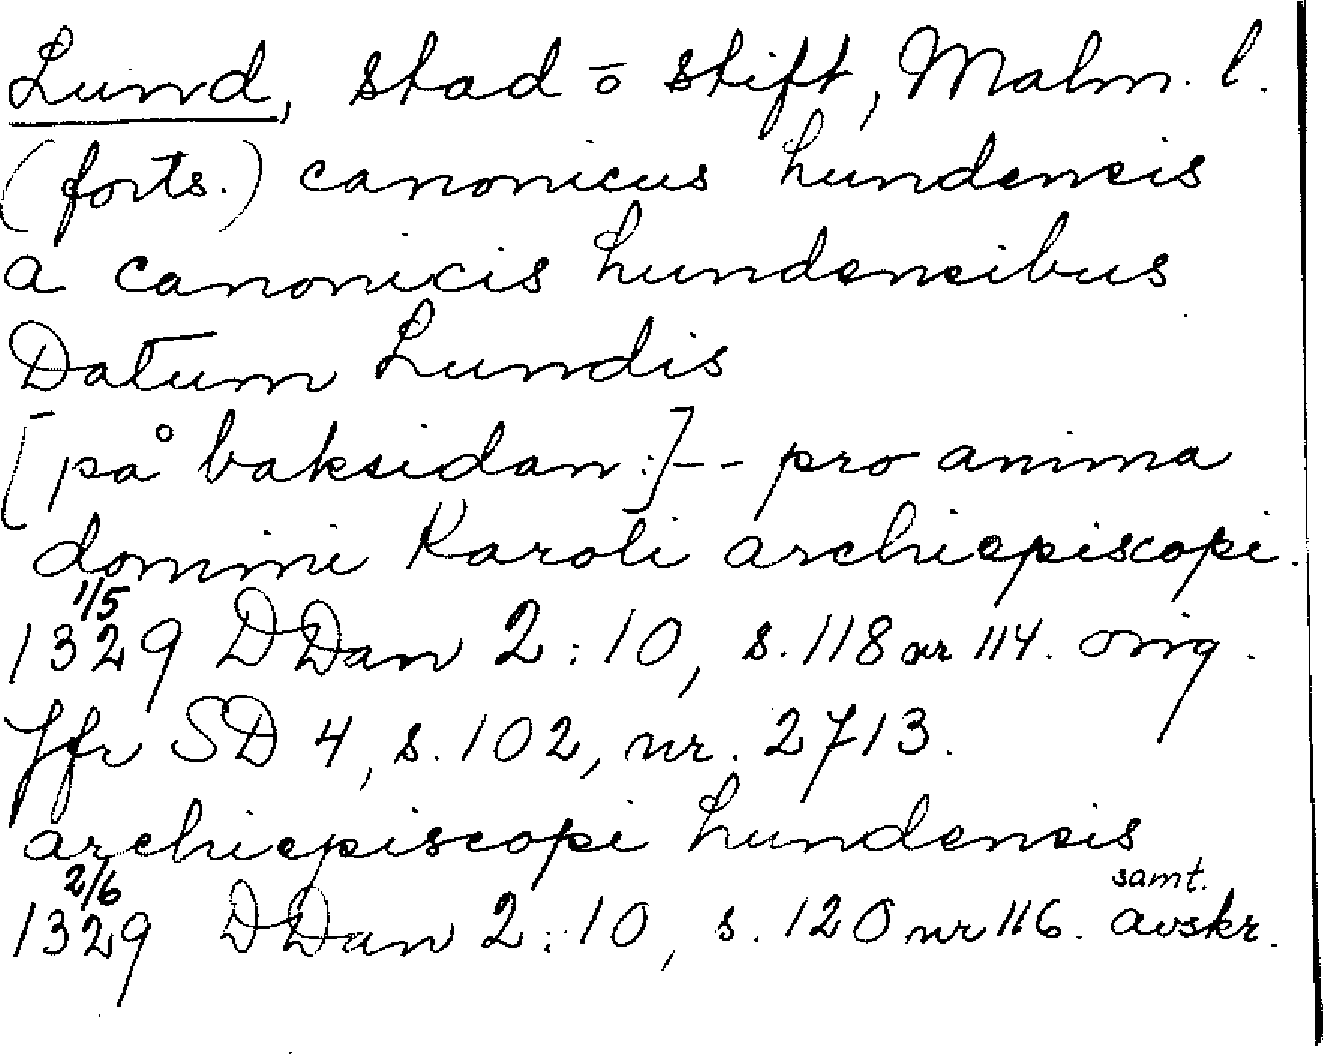 Lund, stad o stift, Malm. l.
(forts.) canonicus Lundensis
a canonicis Lundensibus
Datum Lundis
[på baksidan:]-- pro anima
domini Karoli archiepiscopi.
1/5
1329 DDan 2:10, s. 118 nr 114. orig.
Jfr SD 4, s. 102, nr. 2713.
archiepiscopi Lundensis
2/6 samt.
1329 DDan 2:10, s. 120 nr 116. avskr.